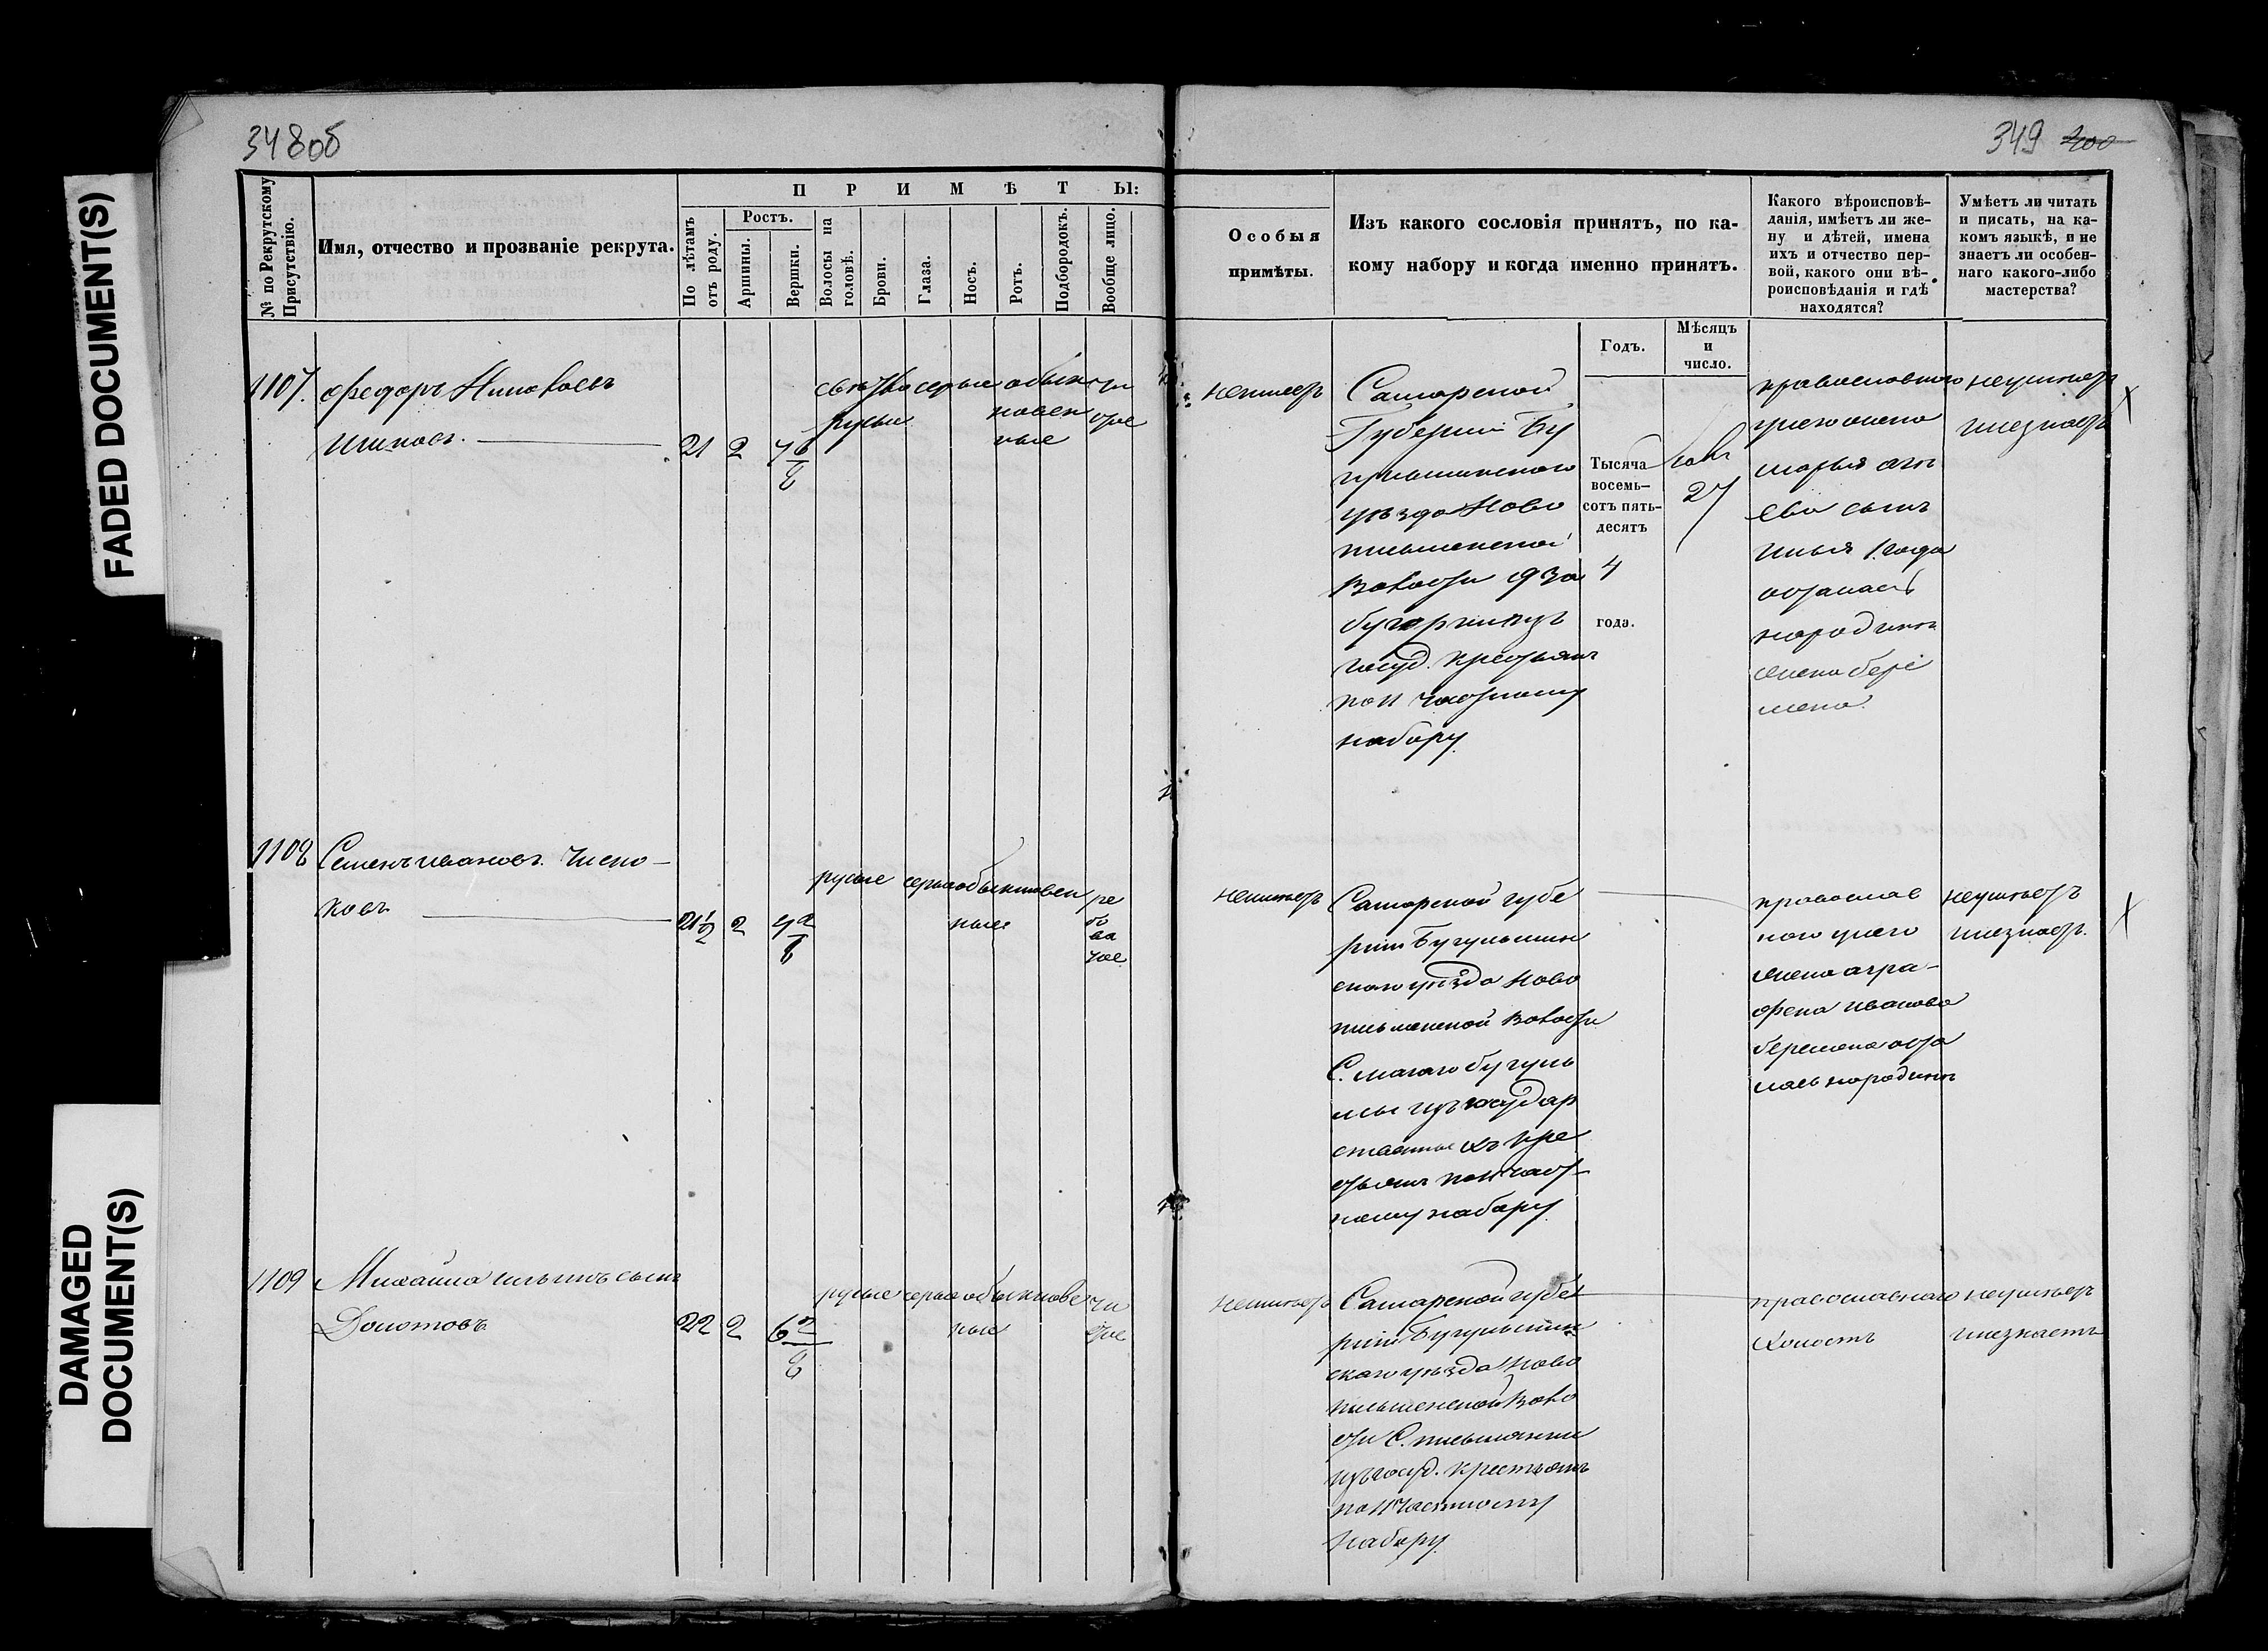 FADED DOCUMENT(S)
DAMAGED
DOCUMENT(S)
348об
349 400
№ по Рекрутскому
Присутствію.
Имя, отчество и прозваніе рекрута.
ПРИМѢТЫ:
По лѣтамъ
отъ роду.
Ростъ.
Аршины.
Вершки.
Волосы на
головѣ.
Брови.
Глаза.
Носъ.
Ротъ.
Подбородокъ.
Вообще лицо.
Особыя
примѣты.
Изъ какого сословія принятъ, по ка-
кому набору и когда именно принятъ.
Годъ.
Мѣсяцъ
и
число.
Какого вѣроисповѣ-
данія, имѣетъ ли же-
ну и дѣтей, имена
ихъ и отчество пер-
вой, какого они вѣ-
роисповѣданія и гдѣ
находятся?
Умѣетъ ли читать
и писать, на ка-
комъ языкѣ, и не
знаетъ ли особен-
наго какого-либо
мастерства?
1107.
Федоръ Николаевъ
21 2 7 6/8
русыя
серые обык
новен
ные
чи
стое
неимеетъ
Самарской
Губерніи Бу
гульминскаго
уѣзда Ново
письмянской
волости
изъ
госуд. крестьянъ
по 11 частному
набору
Тысяча
восемь-
сотъ пять-
десятъ
4
года.
27
православнаго
у него жена
Марья
ева сынъ
Илья 1 года
осталась
народинѣ
жена бере
мена.
неумѣетъ
инезнаетъ
1108
Семенъ Ивановъ Чисно-
ковъ
21 1/2 2 4 2/8
русые серые обыкновен
ные
ре
бо
ва
тое
неимѣетъ
Самарской губе
рніи Бугульмин
скаго уѣзда Ново
письмянской волости
С. малаго бугуль
мы изъ государ
ственныхъ кре
стьянъ по 11 част-
ному набору
православ
наго у него
жена Агра-
фена Иванова
беремена оста
лась народинѣ
неумѣетъ
инезнаетъ.
1109
Михайла Ильинъ сынъ
Долотовъ
22 2 6 2/8
русые серые обыкнове
ные
чи
стое
неимѣетъ
Самарской губе
рніи Бугульмин
скаго уѣзда Ново
письмянской воло
сти С. письмянки
изъ госуд. крестьянъ
по 11 частному
набору
православнаго
холостъ
неумѣетъ
инезнаетъ